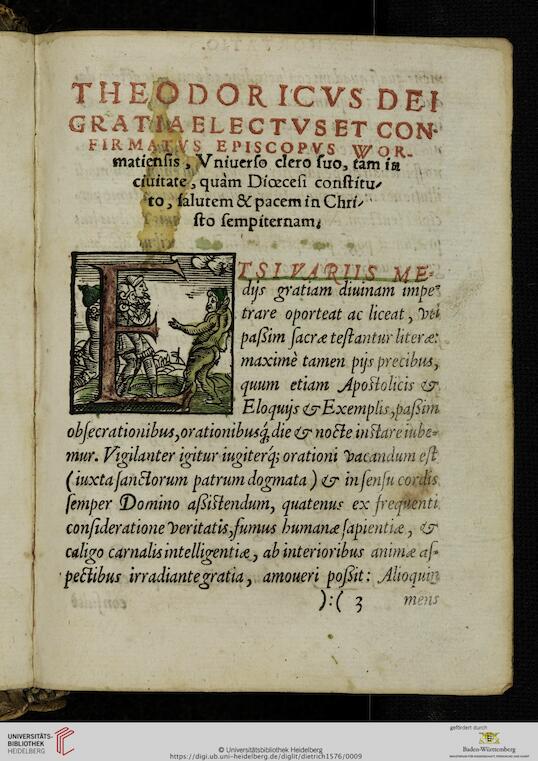 THEODORICVS DEI
GRATIA ELECTVS ET CON-
FIRMATVS EPISCOPVS WOR-
matiensis, Vniuerso clero suo, tam in
ciuitate, quàm Diœcesi constitu-
to, salutem & pacem in Chri-
sto sempiternam.
ETSI VARIIS ME-
dijs gratiam diuinam impe-
trare oporteat ac liceat, vti
passim sacræ testantur literæ:
maximè tamen pijs precibus,
quum etiam Apostolicis &
Eloquijs & Exemplis, passim
obsecrationibus, orationibusq́, die & nocte instare iube-
mur. Vigilanter igitur iugiterq́; orationi vacandum est
(iuxta sanctorum patrum dogmata) & in sensu cordis
semper Domino assistendum, quatenus ex frequenti
consideratione veritatis, fumus humanæ sapientiæ, &
caligo carnalis intelligentiæ, ab interioribus animæ as-
pectibus irradiante gratia, amoueri possit: Alioquin
):( 3 mens
UNIVERSITÄTS-
BIBLIOTHEK
HEIDELBERG
© Universitätsbibliothek Heidelberg
https://digi.ub.uni-heidelberg.de/diglit/dietrich1576/0009
gefördert durch
Baden-Württemberg